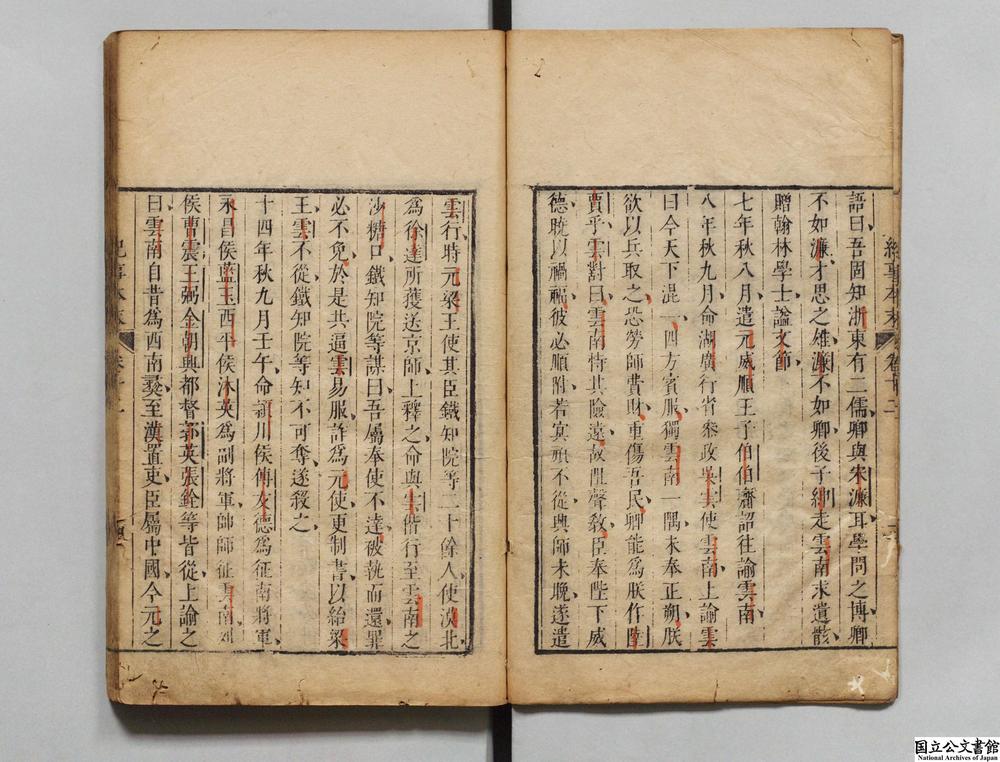 語曰吾固知浙東有二儒卿與宋濂耳學問之博卿
不如濂才思之雄濂不如卿後子紳走雲南求遺骸
贈翰林學士謚文節
七年秋八月遣元威順王子伯伯齎詔往諭雲南
八年秋九月命湖廣行省參政吳雲使雲南上諭雲
曰今天下混一四方賓服獨雲南一隅未奉正朔朕
欲以兵取之恐勞師費財重傷吾民卿能為朕作陸
賈乎雲對曰雲南恃其險遠故阻聲教臣奉陛下威
德曉以禍福彼必順附若冥頑不從興師未晚遂遣
雲行時元梁王使其臣鐵知院等二十餘人使漠北
為徐達所獲送京師上釋之命與雲偕行至雲南之
沙糖口鐵知院等謀曰吾屬奉使不達被執而還罪
必不免於是共逼雲易服詐為元使更制書以紿梁
王雲不從鐵知院等知不可奪遂殺之
十四年秋九月壬午命潁川侯傅友德為征南將軍
永昌侯藍玉西平侯沐英為副將軍帥師征雲南列
侯曹震王弼金朝興都督郭英張銓等皆從上諭之
曰雲南自昔為西南彝至漢置吏臣屬中國今元之
紀事本末 卷十二
国立公文書館
National Archives of Japan